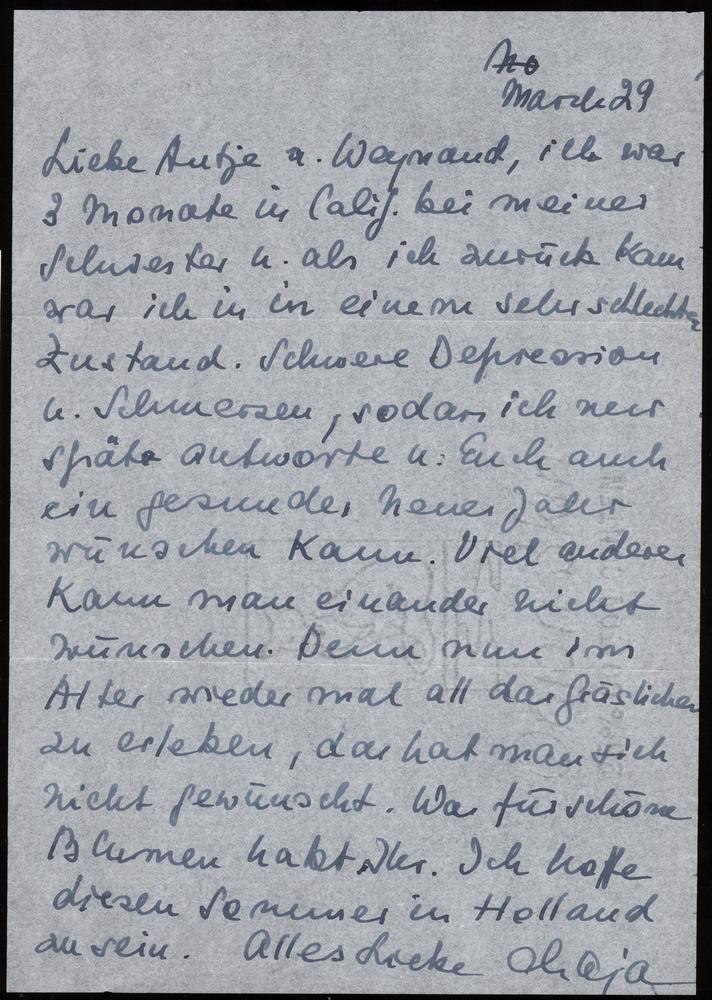 March 29
Liebe Antje u. Weynand, ich war
3 Monate in Calif. bei meiner
Schwester u. als ich zurück kam
war ich in in einem sehr schlechten
Zustand. Schwere Depression
u. Schmerzen, sodass ich nur
späte antworte u. Euch auch
ein gesundes Neues Jahr
wünschen kann. Viel anderes
kann man einander nicht
wünschen. Denn nun im
Alter wieder mal all das Grässlichen
zu erleben, das hat man sich
nicht gewünscht. Was für schöne
Blumen habt Ihr. Ich hoffe
diesen Sommer in Holland
zu sein. Alles Liebe Chaja